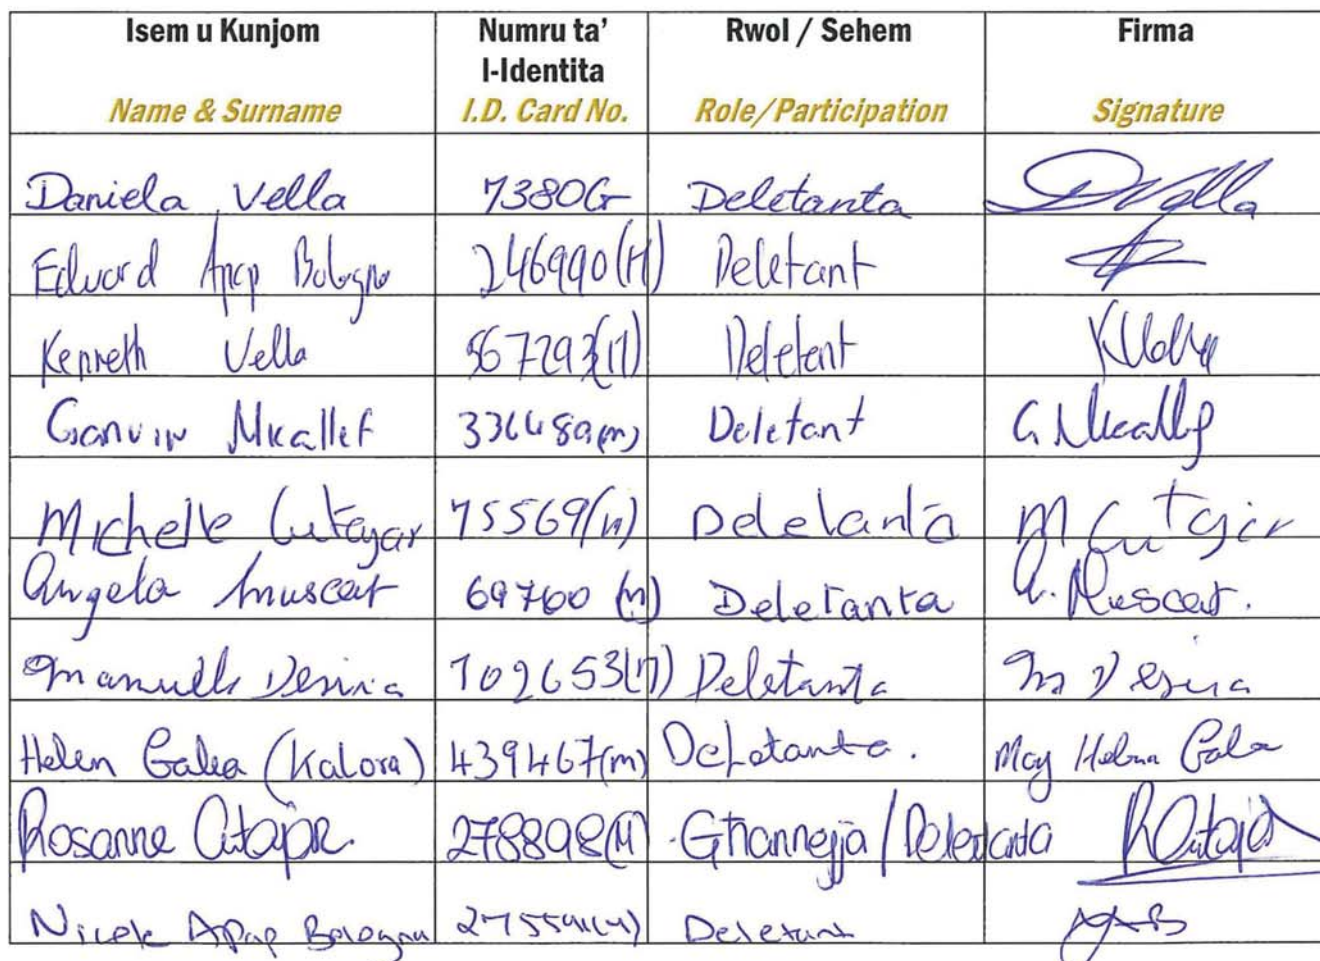 Isem u Kunjom Numru ta' Rwol / Sehem Firma
l-Identita
Name & Surname I.D. Card No. Role/Participation Signature
Daniela Vella 7380G Deletanta DVella
Edward Apap Bologna 246990(M) Deletant
Kenneth Vella 567293(M) Deletant KVella
Ganvin Micallef 336489(m) Deletant G. Micallef
Michelle Cutayar 75569(M) Deletanta M Cutajar
Angela Muscat 69760 (M) Deletanta A. Muscat.
Manuella Desira 102653(M) Deletanta M Desira
Helen Galea (Kalora) 439467(m) Deletanta. May Helen Galea
Rosanne Cutajar. 278898(M) Għannejja / Deletanta RCutajar
Nicole Apap Bologna Deletant